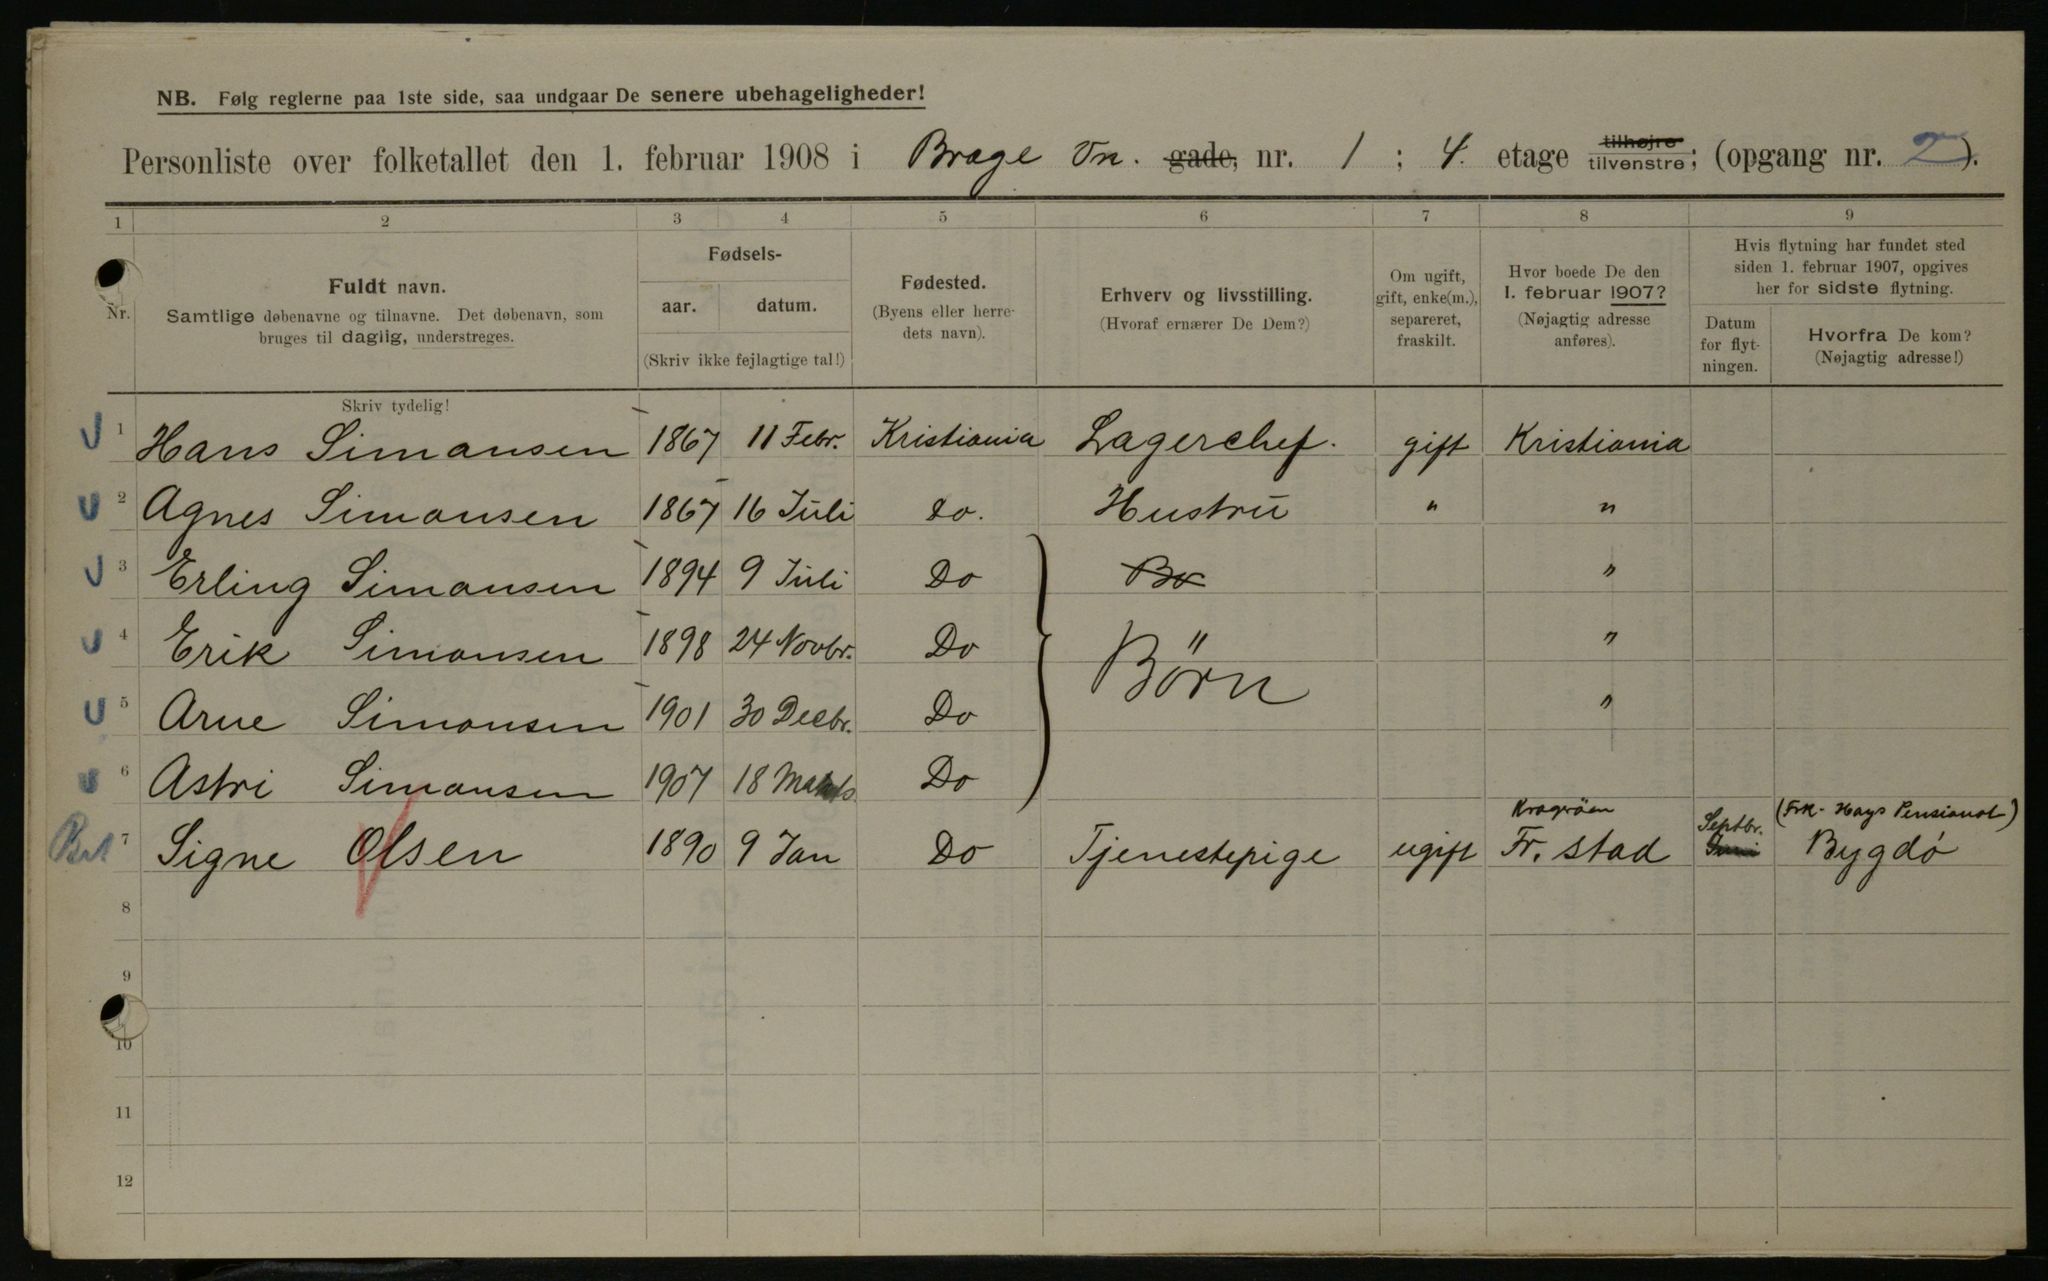 NB. Følg reglerne paa 1ste side, saa undgaar De senere ubehageligheder!
Personliste over folketallet den 1. februar 1908 i Brage Vn. gade, nr. 1 ; 4. etage tilhøjre tilvenstre; (opgang nr. 2).
1 2 3 4 5 6 7 8 9
Nr.
Fuldt navn.
Samtlige døbenavne og tilnavne. Det døbenavn, som
bruges til daglig, understreges.
Skriv tydelig!
Fødsels-
aar. datum.
(Skriv ikke fejlagtige tal!)
Fødested.
(Byens eller herre-
dets navn).
Erhverv og livsstilling.
(Hvoraf ernærer De Dem?)
Om ugift,
gift, enke(m.),
separeret,
fraskilt.
Hvor boede De den
1. februar 1907?
(Nøjagtig adresse
anføres).
Hvis flytning har fundet sted
siden 1. februar 1907, opgives
her for sidste flytning.
Datum
for flyt-
ningen.
Hvorfra De kom?
(Nøjagtig adresse!)
1 Hans Simonsen 1867 11 Febr. Kristiania Lagerchef. gift Kristiania
2 Agnes Simonsen 1867 16 Juli do. Hustru " "
3 Erling Simonsen 1894 9 Juli Do Bø "
4 Erik Simonsen 1898 24 Novbr. Do Börn "
5 Arne Simonsen 1901 30 Decbr. Do "
6 Astri Simonsen 1907 18 Marts Do
Kragrøen Septbr. (Frk. Hays Pensionat)
7 Signe Olsen 1890 9 Jan Do Tjenestepige ugift Fr. stad Juni Bygdö
8
9
10
11
12